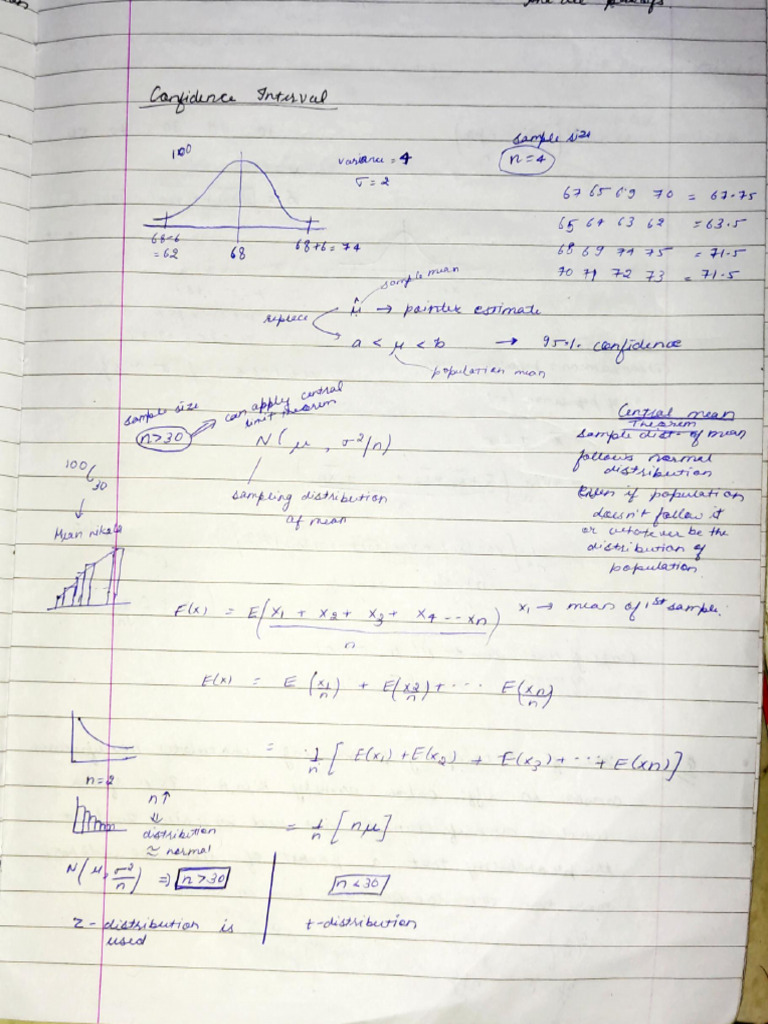 Confidence Interval
100
variance = 4
σ = 2
sample size
n = 4
67 65 69 70 = 67.75
65 64 63 62 = 63.5
68 69 74 75 = 71.5
70 71 72 73 = 71.5
68-6
= 62
68
68+6 = 74
sample mean
replace
μ̂ → pointer estimate
a < μ < b → 95% confidence
population mean
sample size
n>30
can apply central
limit theorem
N(μ, σ²/n)
sampling distribution
of mean
Central mean
Theorem
sample dist. of mean
follows normal
distribution
Even if population
doesn't follow it
or whatever be the
distribution of
population
100C30
↓
Mean nikala
E(x) = E(x1 + x2 + x3 + x4 -- xn)
n
x1 → mean of 1st sample.
E(x) = E(x1/n) + E(x2/n) + ... E(xn/n)
= 1/n [E(x1) + E(x2) + E(x3) + ... + E(xn)]
n=2
n↑
⇓
distribution
≃ normal
= 1/n [nμ]
N(μ, σ²/n) ⇒ n>30
n<30
Z-distribution is
used
t-distribution